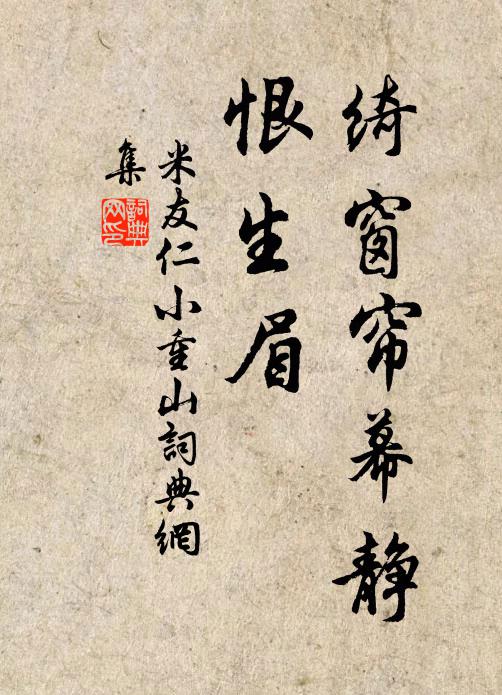 绮窗帘幕静
恨生眉
米友仁小重山詞典網
集
詞典
网印